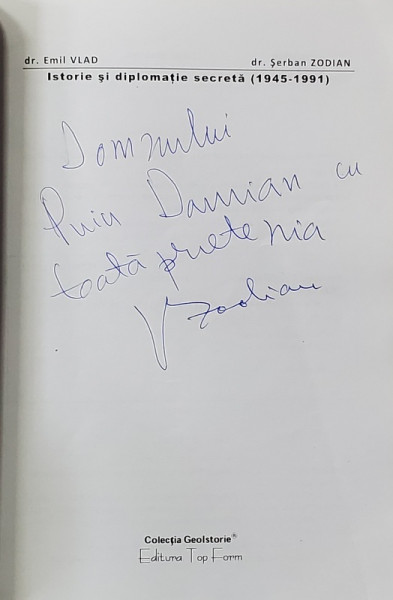 dr. Emil VLAD dr. Şerban ZODIAN
Istorie şi diplomaţie secretă (1945-1991)
Domnului
Puiu Damian cu
toată prietenia
VZodian
Colecţia GeoIstorie®
Editura Top Form